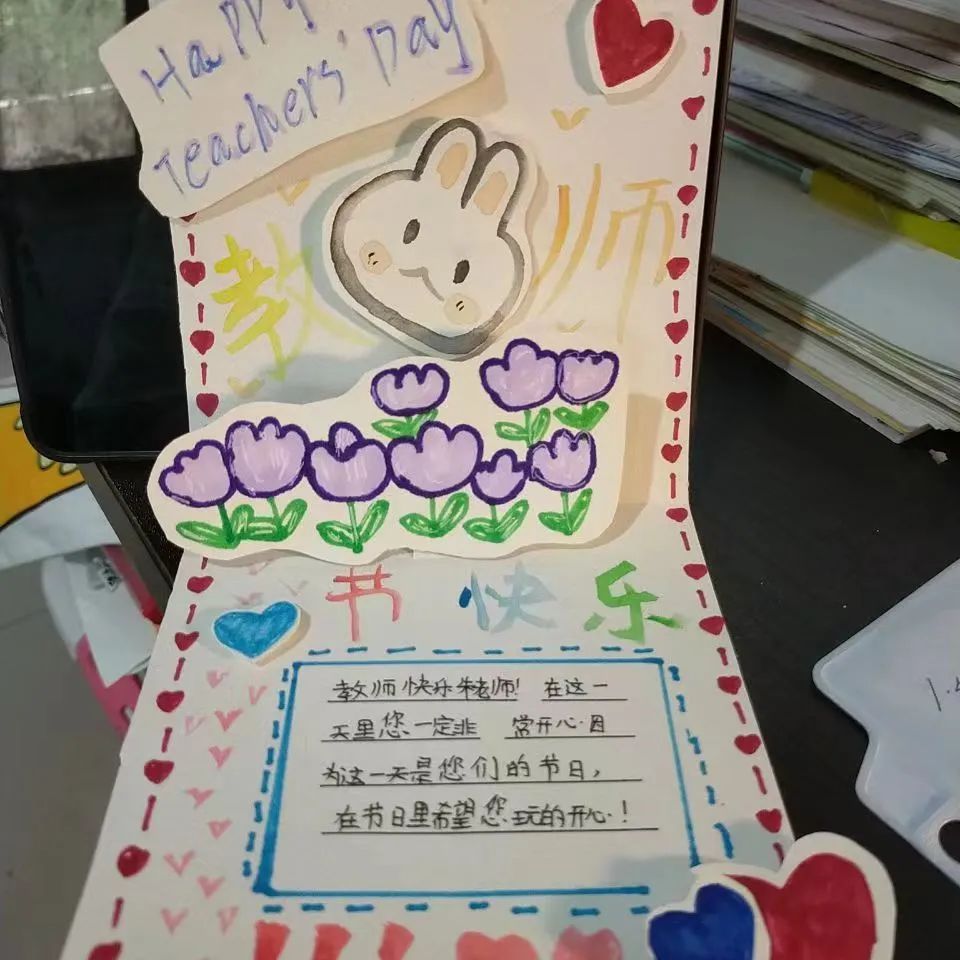 Happy
Teachers' Day
教师
节快乐
教师快乐朱老师！ 在这一
天里您一定非 常开心·因
为这一天是您们的节日，
在节日里希望您玩的开心！